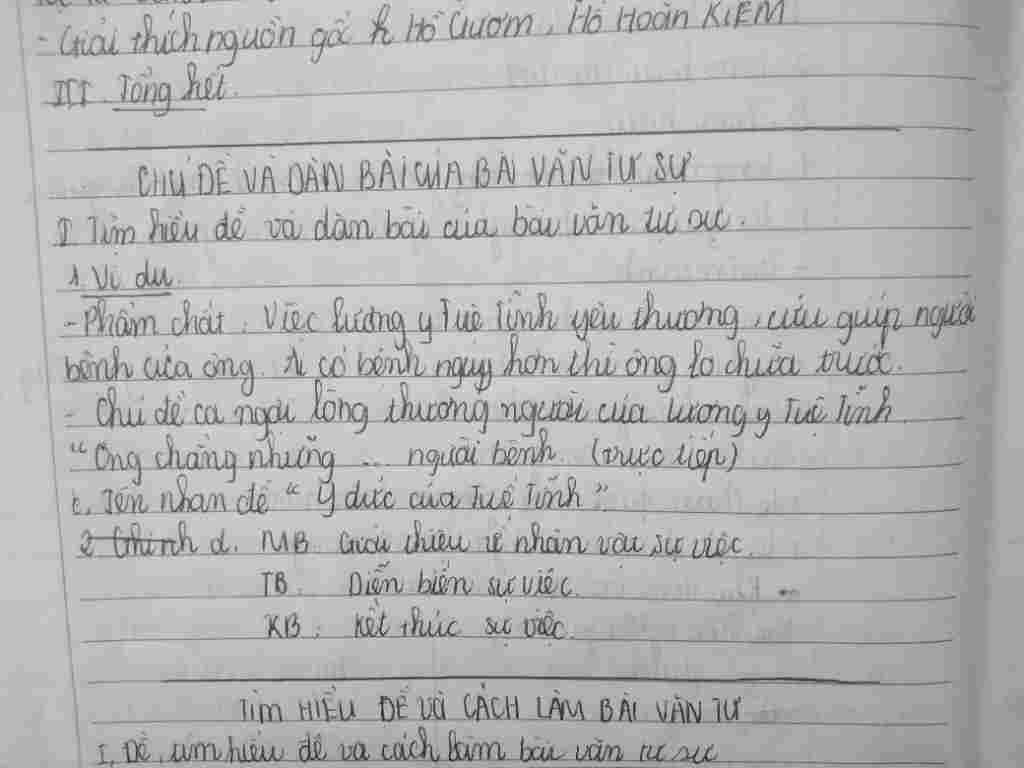 - Giải thích nguồn gốc Hồ Gươm, Hồ Hoàn KIẾM
III. Tổng kết.
CHỦ ĐỀ VÀ DÀN BÀI CỦA BÀI VĂN TỰ SỰ
I Tìm hiểu đề và dàn bài của bài văn tự sự.
1. Ví dụ.
- Phẩm chất: Việc lương y Tuệ Tĩnh yêu thương, cứu giúp người
bệnh của ông. Ai có bệnh nguy hơn thì ông lo chữa trước.
- Chủ đề ca ngợi lòng thương người của lương y Tuệ Tĩnh
"Ông chẳng những ... người bệnh. (trực tiếp)
c. Tên nhan đề "Y đức của Tuệ Tĩnh"
d. MB. Giới thiệu về nhân vật sự việc.
TB. Diễn biến sự việc.
KB: Kết thúc sự việc.
Tìm HIỂU ĐỀ VÀ CÁCH LÀM BÀI VĂN TỰ
I, Đề, tìm hiểu đề và cách làm bài văn tự sự